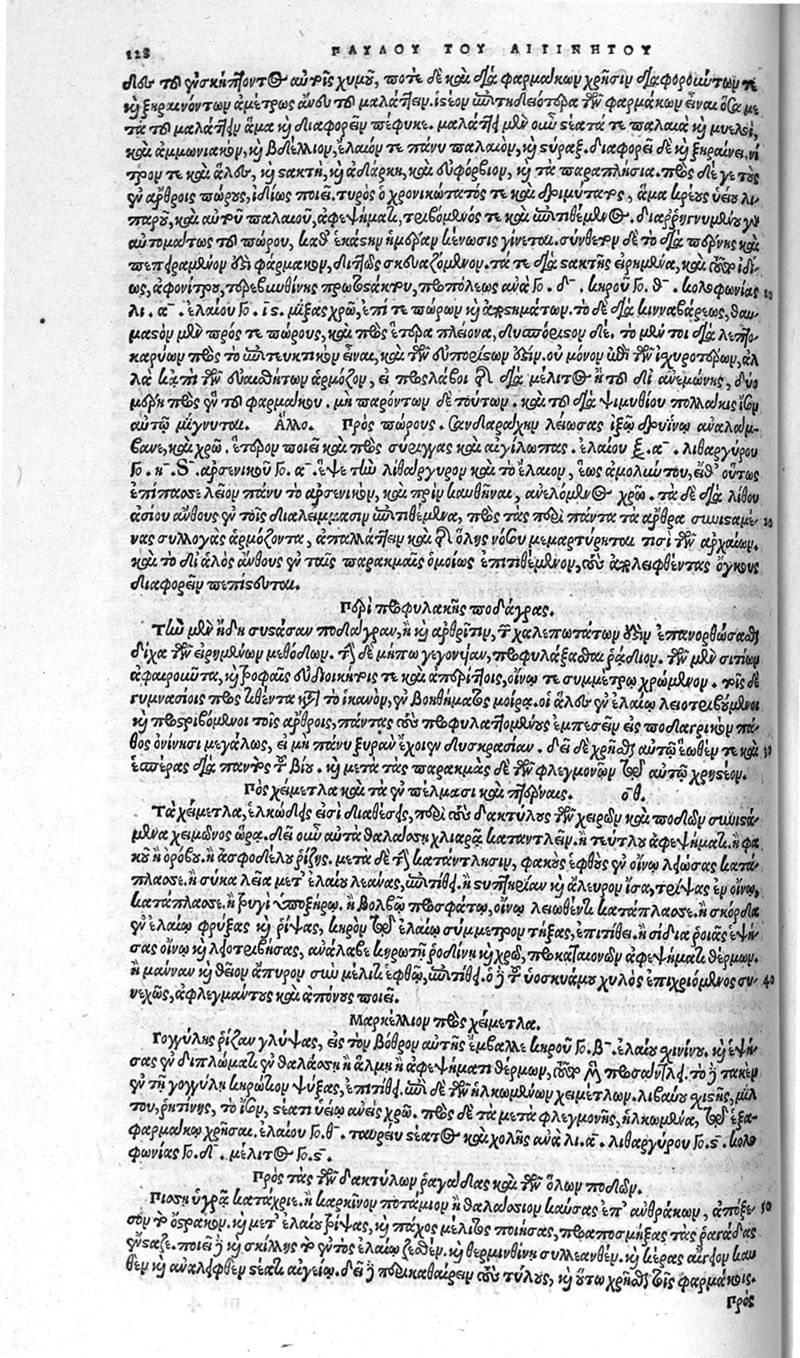 128 ΠΑΥΛΟΥ ΤΟΥ ΑΙΓΙΝΗΤΟΥ
χυμοῦ, ποτὲ δὲ καὶ διὰ φαρμάκων χρῆσιν διαφορούντων τε
καὶ ξηραινόντων ἀμέτρως ἄνευ τοῦ μαλάττειν. ἰστέον ἐπιτηδειότερα τῶν φαρμάκων εἶναι ὅσα με
τὰ τοῦ μαλάττειν ἅμα καὶ διαφορεῖν πέφυκε. μαλάττει μὲν οὖν στέατά τε παλαιὰ καὶ μυελοὶ,
καὶ ἀμμωνιακὸν, καὶ βδέλλιον, ἔλαιόν τε πάνυ παλαιὸν, καὶ στύραξ. διαφορεῖ δὲ καὶ ξηραίνει νί
τρον τε καὶ ἅλες, καὶ ἀδάρκη, καὶ εὐφόρβιον, καὶ τὰ παραπλήσια. πρὸς δέ γε τοὺς
ἐν ἄρθροις πώρους, ἰδίως ποιεῖ. τυρὸς ὁ χρονιώτατός τε καὶ δριμύτατος, ἅμα κρέως ὑείου λι
παροῦ, καὶ αὐτοῦ παλαιοῦ, ἀφεψήματι, τριβόμενός τε καὶ ἐπιτιθέμενος. διαρρηγνυμένου γὰρ
αὐτομάτως τοῦ πώρου, καθ' ἑκάστην ἡμέραν κένωσις γίνεται. σύνθετον δὲ τὸ διὰ πτέρνης καὶ
πεπειραμένον φάρμακον, διττῶς σκευαζόμενον. τά τε εἰρημένα, καὶ ἰδί
ως, ἀφρονίτρου, τερεβινθίνης, προπόλεως ἀνὰ Γο. δ. κηροῦ Γο. θ. κολοφωνίας 10
λι. α. ἐλαίου Γο. ις. μίξας χρῶ, ἐπί τε πώρων καὶ ἀποστημάτων. τὸ δὲ διὰ κινναβάρεως, θαυ
μαστὸν μὲν πρός τε πώρους, καὶ πρὸς ἕτερα πλείονα, δυσπόριστον δέ. τὸ μέν τοι διὰ λεπτο
καρύων πρὸς τῶ ἐπιτευκτικὸν εἶναι, καὶ τῶν εὐπορίστων ἐστίν. οὐ μόνον ἐπὶ τῶν ἰσχυροτέρων, ἀλ
λὰ καὶ ἐπὶ τῶν εὐαισθήτων ἁρμόζον, εἰ προσλάβοι τῆς διὰ μέλιτος ἢ τῆς δι' ἀνεμώνης, δύο
μέρη πρὸς ἓν τοῦ φαρμάκου. μὴ παρόντων δὲ τούτων. καὶ τῆς διὰ ψιμυθίου πολλάκις ἴσον
αὐτῷ μίγνυται. Ἄλλο. Πρὸς πώρους. Σανδαράχην λειώσας ἰξῷ δρυΐνῳ ἀναλάμ-
βανε, καὶ χρῶ. ἕτερον ποιεῖ καὶ πρὸς σύριγγας καὶ αἰγίλωπας. ἐλαίου ξ. α. λιθαργύρου
Γο. η. S. ἀρσενικοῦ Γο. α. ἕψε τὴν λιθάργυρον καὶ τὸ ἔλαιον, ἕως ἀμολύντου, εἶθ' οὕτως
ἐπίπασσε λεῖον πάνυ τὸ ἀρσενικὸν, καὶ πρὶν καυθῆναι, ἀνελόμενος χρῶ. τὰ δὲ διὰ λίθου
ἀσίου ἄνθους ἐν τοῖς διαλείμμασιν ἐπιτιθέμενα, πρὸς τὰς περὶ πάντα τὰ ἄρθρα συνισταμέ- 20
νας συλλογὰς ἁρμόζοντα, ἀπαλλάττειν καὶ τῆς ὅλης νόσου μεμαρτύρηται τισὶ τῶν ἀρχαίων.
καὶ τὸ δι' ἁλὸς ἄνθους ἐν ταῖς παρακμαῖς ὁμοίως ἐπιτιθέμενον, τοὺς περιλειφθέντας ὄγκους
διαφορεῖν πεπίστευται.
Περὶ προφυλακῆς ποδάγρας.
Τὴν μὲν ἤδη συστᾶσαν ποδάγραν, ἢ καὶ ἀρθρῖτιν, τῶν χαλεπωτάτων ἐστὶν ἐπανορθώσασθαι
δίχα τῶν εἰρημένων μεθόδων. τὴν δὲ μήπω γεγονυῖαν, προφυλάξασθαι ῥᾴδιον. τῶν μὲν σιτίων
ἀφαιροῦντα, καὶ τροφαῖς εὐδιοικήτοις τε καὶ ἀπερίττοις, οἴνῳ τε συμμέτρῳ χρώμενον. τοῖς δὲ
γυμνασίοις προστιθέντα κατὰ τὸ ἱκανὸν, ἐν βοηθήματος μοίρᾳ. οἱ ἅλες ἐν ἐλαίῳ λειοτριβούμενοι
καὶ προστριβόμενοι τοῖς ἄρθροις, πάντας τοὺς προφυλαττομένους ἐμπεσεῖν εἰς ποδαγρικὸν πά
θος ὀνίνησι μεγάλως, εἰ μὴ πάνυ ξηρὰν ἔχοιεν δυσκρασίαν. δεῖ δὲ χρῆσθαι αὐτῷ ἕωθέν τε καὶ 30
ἑσπέρας διὰ παντὸς τοῦ βίου. καὶ μετὰ τὰς παρακμὰς δὲ τῶν φλεγμονῶν αὐτῷ χρηστέον.
Πρὸς χείμετλα καὶ τὰ ἐν πέλμασι καὶ πτέρναις. οθ.
Τὰ χείμετλα, ἑλκώδεις εἰσὶ διαθέσεις, περὶ τοὺς δακτύλους τῶν χειρῶν καὶ ποδῶν συνιστά-
μεναι χειμῶνος ὥρᾳ. δεῖ οὖν αὐτὰ θαλάσσῃ χλιαρᾷ καταντλεῖν. ἢ τεύτλου ἀφεψήματι. ἢ φα
κοῦ ἢ ὀρόβου. ἢ ἀσφοδέλου ῥίζης. μετὰ δὲ τὴν κατάντλησιν, φακοὺς ἑφθοὺς ἐν οἴνῳ λειώσας κατά-
πλασσε. ἢ σῦκα λεῖα μετ' ἐλαίου λεάνας, ἐπιτίθει. ἢ στυπτηρίαν καὶ ἄλευρον ἴσα, τρίψας ἐν οἴνῳ,
κατάπλασσε. ἢ τρυγὶ ὑποξήρῳ. ἢ βολβῷ προσφάτῳ, οἴνῳ λειωθέντι κατάπλασσε. ἢ σκόρδα
ἐν ἐλαίῳ φρύξας καὶ τρίψας, κηρὸν ἐλαίῳ σύμμετρον τήξας, ἐπιτίθει. ἢ σίδια ῥοιᾶς ἑψή-
σας οἴνῳ καὶ λειοτριβήσας, ἀνάλαβε κηρωτῇ ῥοδίνῃ καὶ χρῶ, προκαταιονῶν ἀφεψήματι θερμῷ.
ἢ μάνναν καὶ θεῖον ἄπυρον σὺν μέλιτι ἑφθῷ, ἐπιτίθει. ὁ δὲ τοῦ ὑοσκυάμου χυλὸς ἐπιχριόμενος συ- 40
νεχῶς, ἀφλεγμάντους καὶ ἀπόνους ποιεῖ.
Μαρκέλλιον πρὸς χείμετλα.
Γογγύλης ῥίζαν γλύψας, εἰς τὸν βόθρον αὐτῆς ἔμβαλλε κηροῦ Γο. β. ἐλαίου σχινίνου. καὶ ἑψή-
σας ἐν διπλώματι ἐν θαλάσσῃ ἢ ἅλμῃ ἢ ἀφεψήματι θερμῶν, τὸ δὲ τακὲν
ἐν τῇ γογγύλῃ κηρώτιον ψύξας, ἐπιτίθει. ἐπὶ δὲ τῶν ἡλκωμένων χειμέτλων. λιβάνου σχιστῆς, μίλ
του, ῥητίνης, τὸ ἴσον, στέατι ὑείῳ ἀνεὶς χρῶ. πρὸς δὲ τὰ μετὰ φλεγμονῆς, ἡλκωμένα, ἑξα-
φαρμάκῳ χρῆσαι. ἐλαίου Γο. θ. ταυρείου στέατος καὶ χολῆς ἀνὰ λι. α. λιθαργύρου Γο. ς. κολο
φωνίας Γο. δ. μέλιτος Γο. ς.
Πρὸς τὰς τῶν δακτύλων ῥαγάδας καὶ τῶν ὅλων ποδῶν.
Πίσσῃ ὑγρᾷ κατάχριε. ἢ καρκίνον ποτάμιον ἢ θαλάσσιον καύσας ἐπ' ἀνθράκων, ἀπόξε- 50
σον τὸ ὄστρακον. καὶ μετ' ἐλαίου τρίψας, καὶ πάχος μέλιτος ποιήσας, προαποσμήξας τὰς ῥαγάδας
ἔνσταζε. ποιεῖ δὲ καὶ σκίλλης τὸ ἐντὸς ἐλαίῳ ζεσθέν. καὶ τερμινθίνῃ συλλεανθέν. καὶ κέρας αἴγειον καυ
θὲν καὶ ἀναληφθὲν στέατι αἰγείῳ. δεῖ δὲ περικαθαίρειν τοὺς τύλους, καὶ οὕτω χρῆσθαι τοῖς φαρμάκοις.
Πρὸς